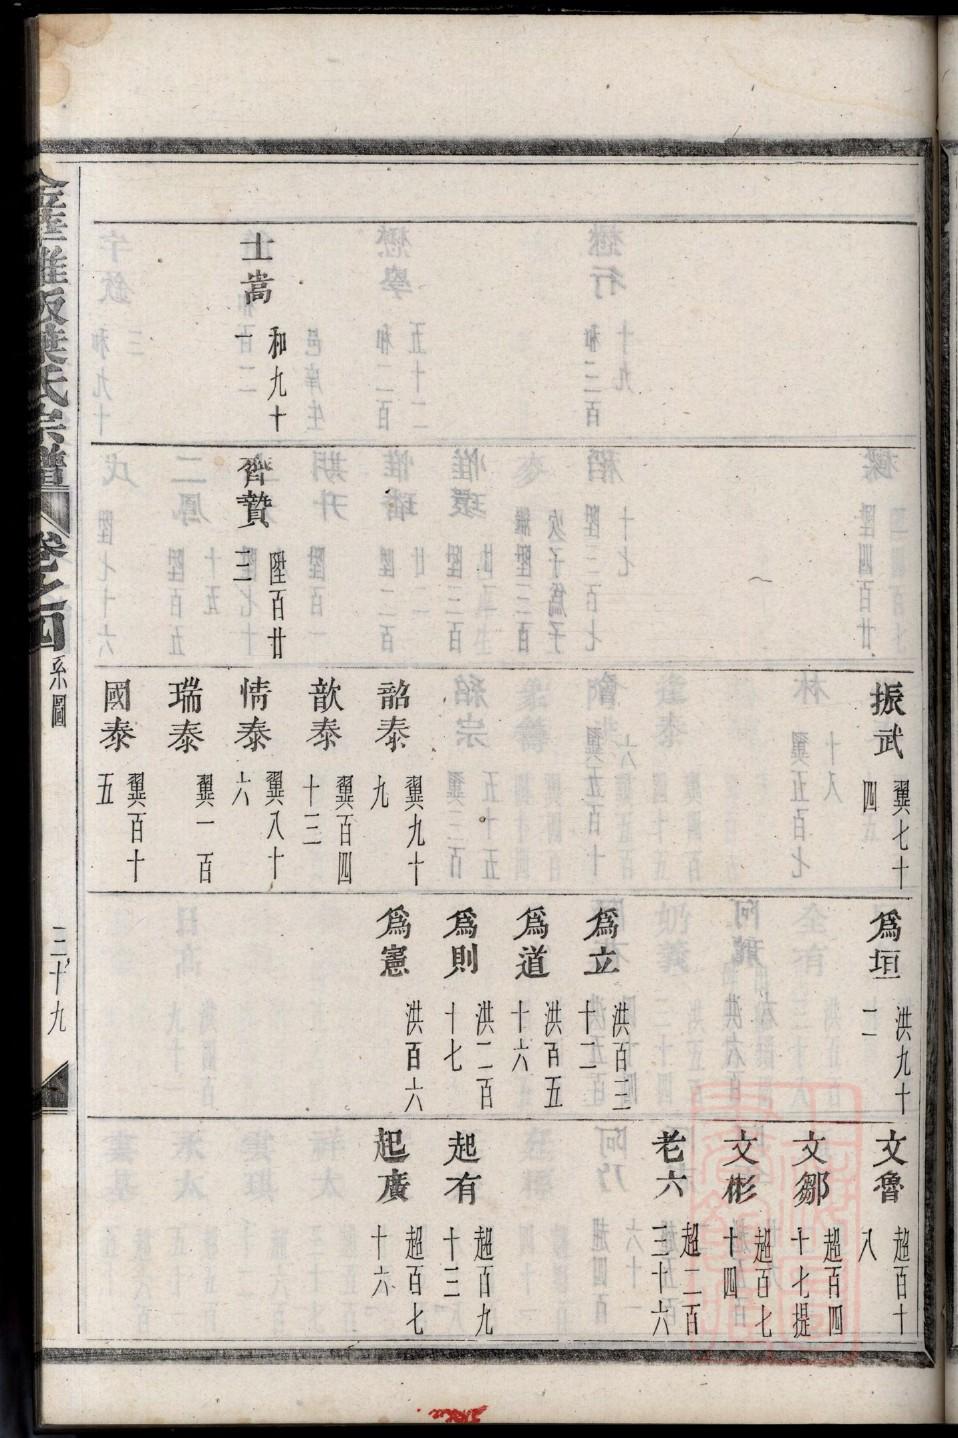 士嵩 和九十一
齊贊 陞百廿三
振武 翼七十四
韶泰 翼九十九
歆泰 翼百四十三
情泰 翼八十六
瑞泰 翼一百
國泰 翼百十五
為垣 洪九十二
為立 洪百三十二
為道 洪百五十六
為則 洪二百十七
為憲 洪百六
文魯 超百十八
文鄒 超百四十七提
文彬 超百七十四
老六 超二百三十六
起有 超百九十三
起廣 超百七十六
葉氏宗譜 卷之四 系圖 三十九